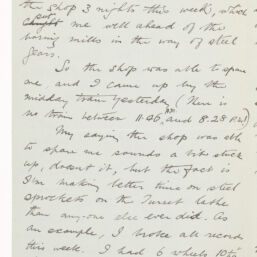 the shop 3 nights this week, which
put me well ahead of the
boring mills in the way of steel
gears.
So the shop was able to spare
me, and I came up by the
midday train yesterday (there is
no train between 11.26 and 8:28 P.M.)
My saying the shop was able
to spare me sounds a bit stuck
up, doesn't it, but the fact is
I'm making better time on steel
sprockets on the Turret lathe
than any-one else ever did. As
an example, I broke all records
this week. I had 6 wheels 10